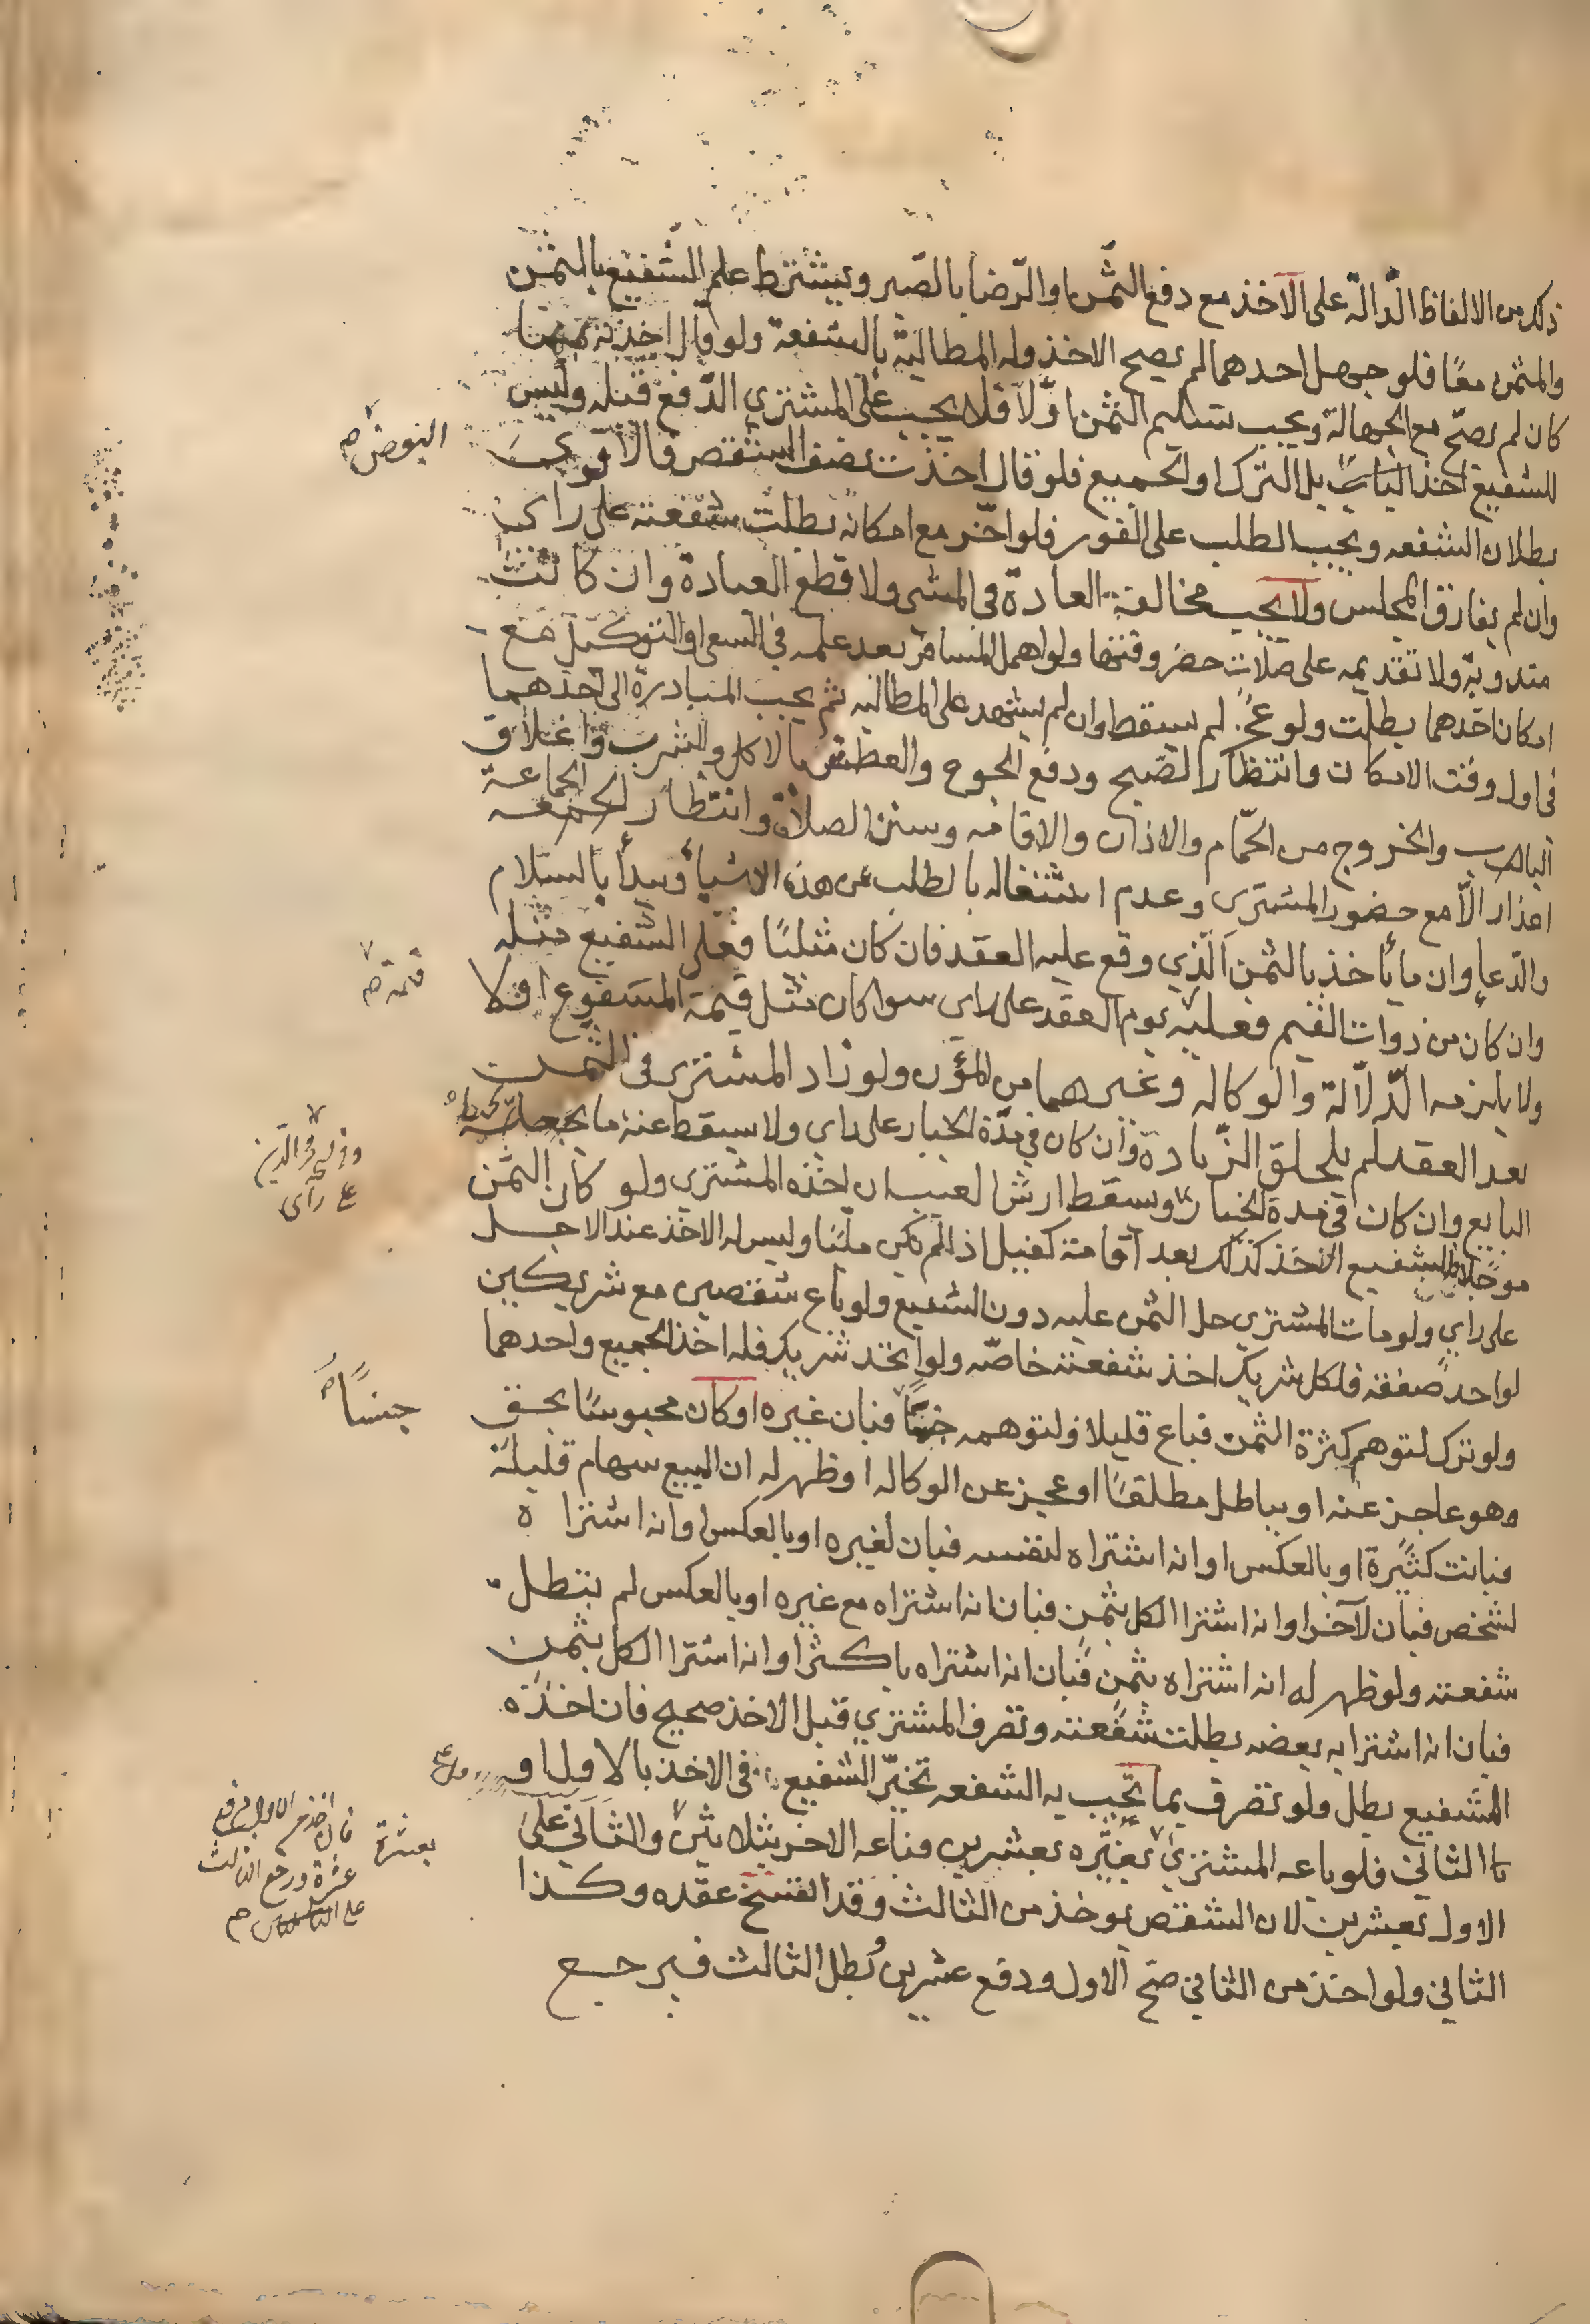 ذكر من الالفاظ الدّالة على الآخذ مع دفع الثّمن او الرّضا بالصّبر ويشترط علم الشّفيع بالثّمن
والمثمن معًا فلو جهل احدهما لم يصح الاخذ وله المطالبة بالشفعة ولو قال اخذته بمهما
كان لم يصحّ مع الجهالة ويجب تسليم الثمن اوّلا فلا يجب على المشتري الدّفع قبله وليس
للشفيع اخذ البعض بل الترك او الجميع فلو قال اخذت نصف الشقص فالاقوى
بطلان الشفعه ويجب الطلب على الفور فلو اخّر مع امكانه بطلت شفعته على راي
وان لم يفارق المجلس ولا يجب مخالفة العادة في المشي ولا قطع العبادة وان كانت
مندوبة ولا تقديمه على صلات حضر وقتها ولو اهمل المسافر بعد علمه في السعي او التوكيل مع
امكان احدهما بطلت ولو عجز لم يسقط وان لم يشهد على المطالبه ثم يجب المبادرة الى احدهما
في اول وقت الامكان وانتظار الصّبح ودفع الجوع والعطش بالاكل والشرب واغلاق
الباب والخروج من الحمّام والاذان والاقامه وسنن الصلاة وانتظار الجماعة
اعذار الّا مع حضور المشتري وعدم اشتغاله بالطلب عن هذه الاشيأ ويبدأ بالسّلام
والدّعا وانما يأخذ بالثمن الّذي وقع عليه العقد فان كان مثليًا فعلى الشفيع مثله
وان كان من ذوات القيم فعليه يوم العقد على راي سوا كان مثل قيمة المشفوع اولا
ولا يلزمه الدّلالة والوكاله وغيرهما من المؤن ولو زاد المشتري في الثمن
بعد العقد لم يلحلق الزّيادة وان كان في مدّة الخيار على راي ولا يسقط عنه ما يحطه
البايع وان كان في مدة الخيار ويسقط ارش العيب ان اخذه المشتري ولو كان الثمن
موجّلا فللشفيع الاخذ كذلك بعد اقامة كفيل اذا لم يكن مليّا وليس له الاخذ عند الاجل
على راي ولو مات المشتري حل الثمن عليه دون الشفيع ولو باع شقصين مع شريكين
لواحد صفقة فلكل شريك اخذ شفعته خاصّه ولو اتحد شريك فله اخذ الجميع واحدهما
ولو ترك لتوهم كثرة الثمن فباع قليلا او لتوهمه فبان غيره او كان محبوسًا بحق
وهو عاجز عنه او بباطل مطلقًا او عجز عن الوكاله او ظهر له ان المبيع سهام قليلة
فبانت كثيرة او بالعكس او انه اشتراه لنفسه فبان لغيره او بالعكس او انه اشتراه
لشخص فبان لآخر او انه اشترا الكل بثمن فبان انه اشتراه مع غيره او بالعكس لم تبطل
شفعته ولو ظهر له انه اشتراه بثمن فبان انه اشتراه باكثر او انه اشترا الكل بثمن
فبان انه اشترا به بعضه بطلت شفعته وتصرف المشتري قبل الاخذ صحيح فان اخذه
الشفيع بطل ولو تصرف بما تجب به الشفعه تخيّر الشفيع في الاخذ بالاول او
بالثاني فلو باعه المشتري بعشرين فباعه الاخر بثلاثين والثاني على
الاول بعشرين لان الشقص يوخذ من الثالث وقد انفسخ عقده وكذا
الثاني ولو اخذ من الثاني صحّ الاول ودفع عشرين وبطل الثالث فيرجع
البعض صح
قيمته صح
على رأى
جنسًا
بعشرة
فان اخذ من الاول دفع
عشرة ورجع الثالث
على الثاني صح